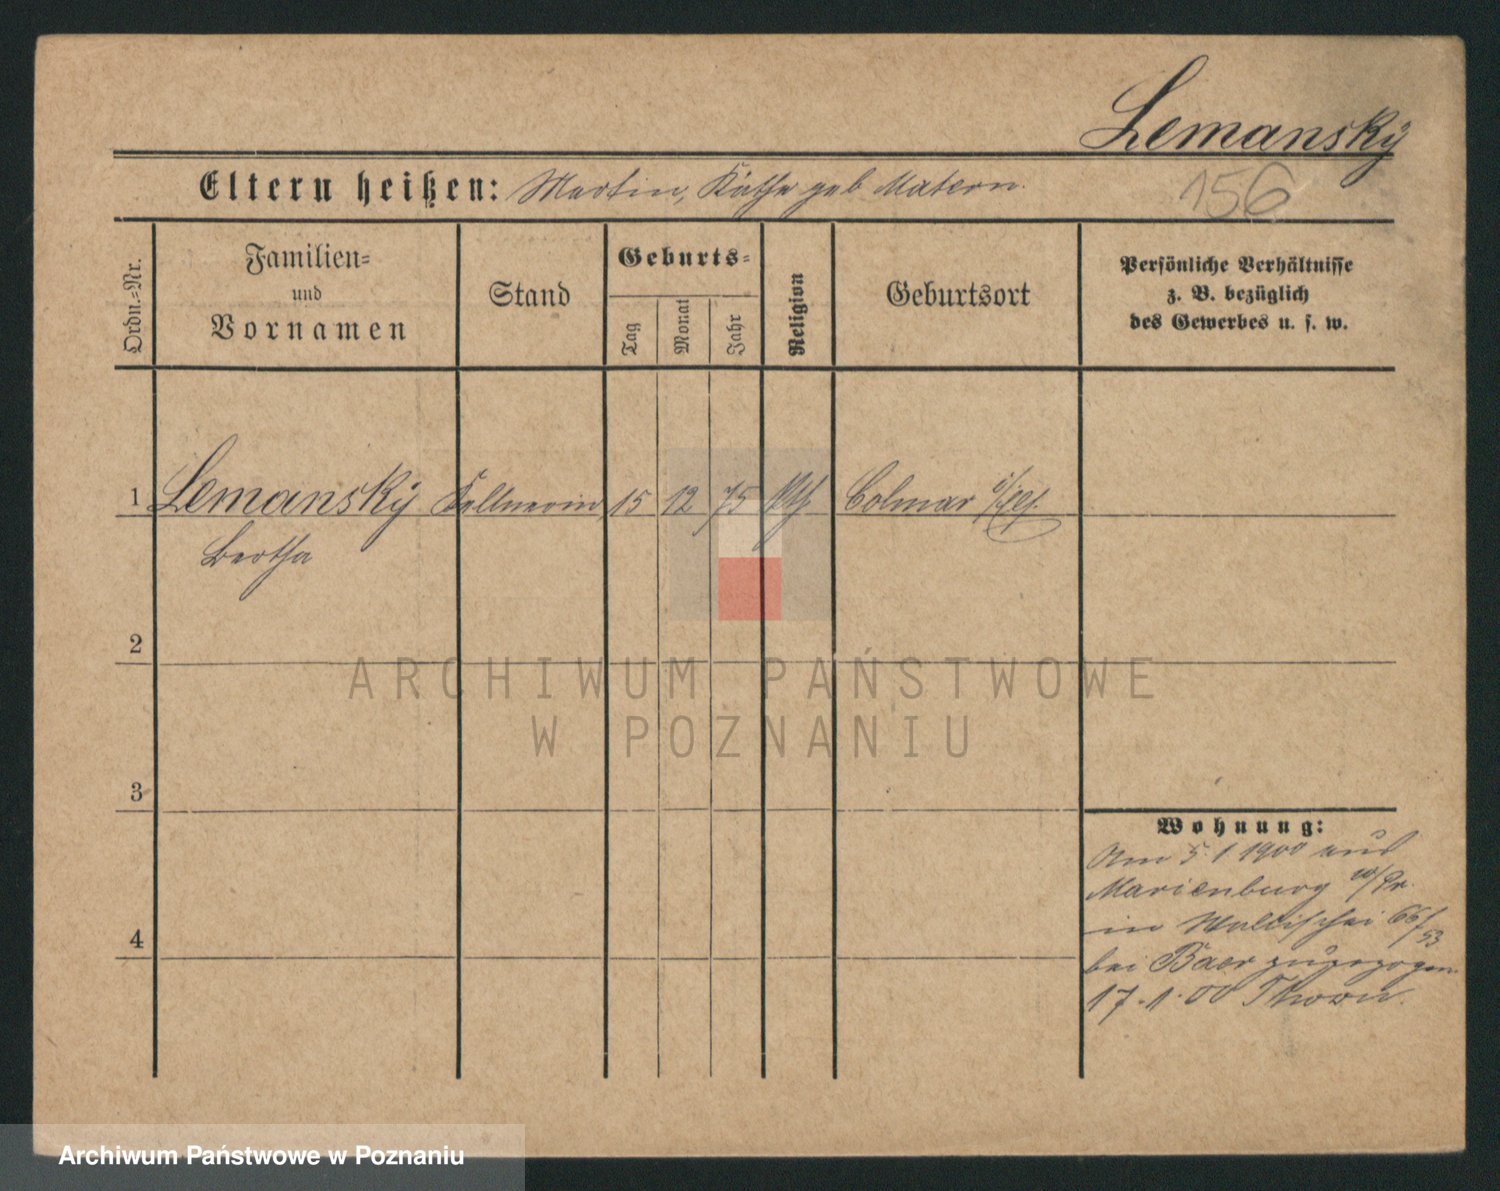 Lemansky
Eltern heißen: Martin, Käthe geb Matern.
156
Ordn.=Nr.
Familien=
und
Vornamen
Stand
Geburts=
Tag
Monat
Jahr
Religion
Geburtsort
Persönliche Verhältnisse
z. B. bezüglich
des Gewerbes u. s. w.
1 Lemansky Kellnerin 15 12 75 kth Colmar i/Els.
Bertha
2
3
4
Wohnung:
Am 5. 1 1900 aus
Marienburg W/Pr.
in Wallischei 66/53
bei Baer zugezogen
17.1.00 Thorn.
ARCHIWUM PAŃSTWOWE
W POZNANIU
Archiwum Państwowe w Poznaniu